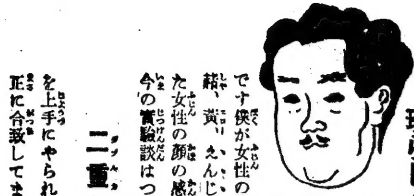 です僕が女性の
赭、黄、えんじ
た女性の顔の感
今の實驗談はつ
二重
を上手にやられ
正に合致してま